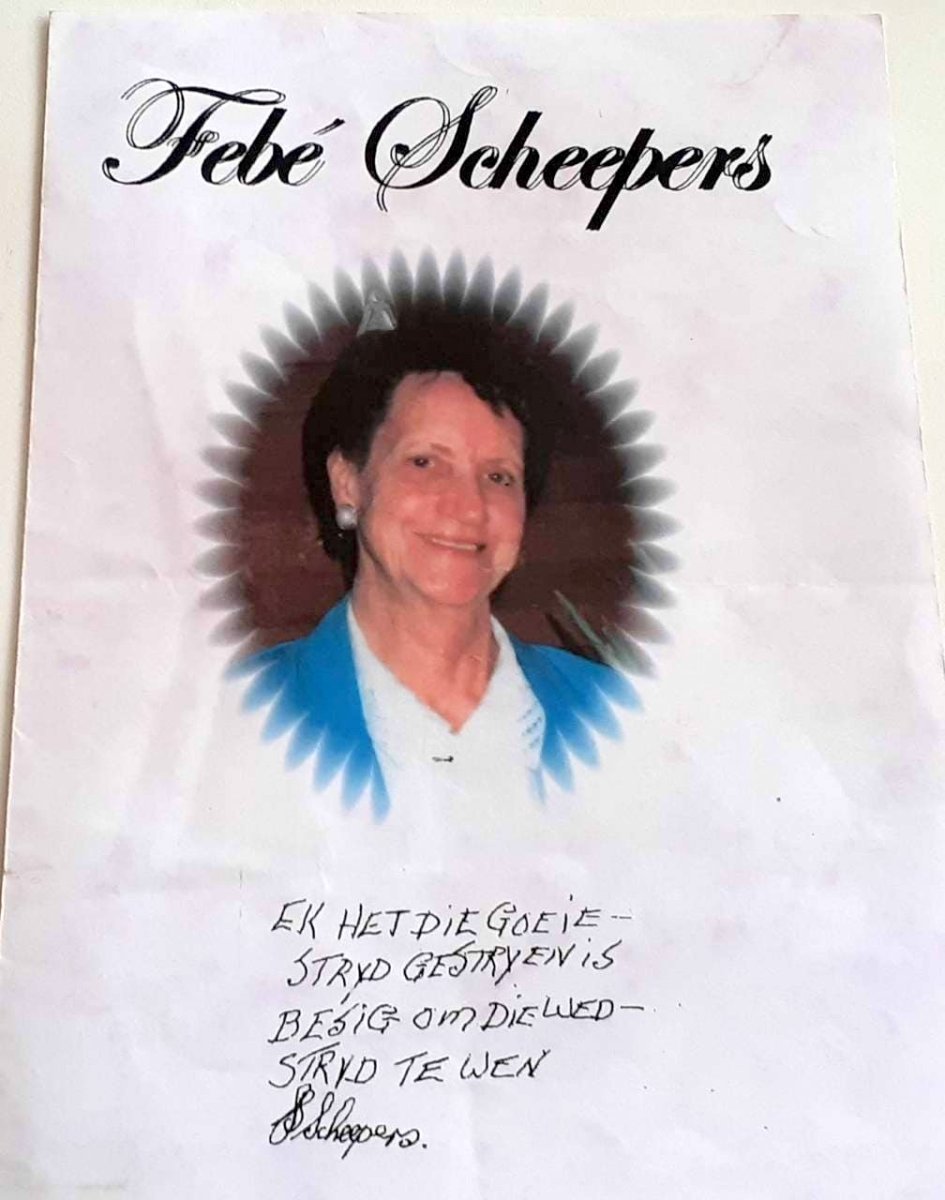 Febé Scheepers
EK HET DIE GOEIE-
STRYD GESTRY EN IS
BESIG OM DIE WED-
STRYD TE WEN
Scheepers.